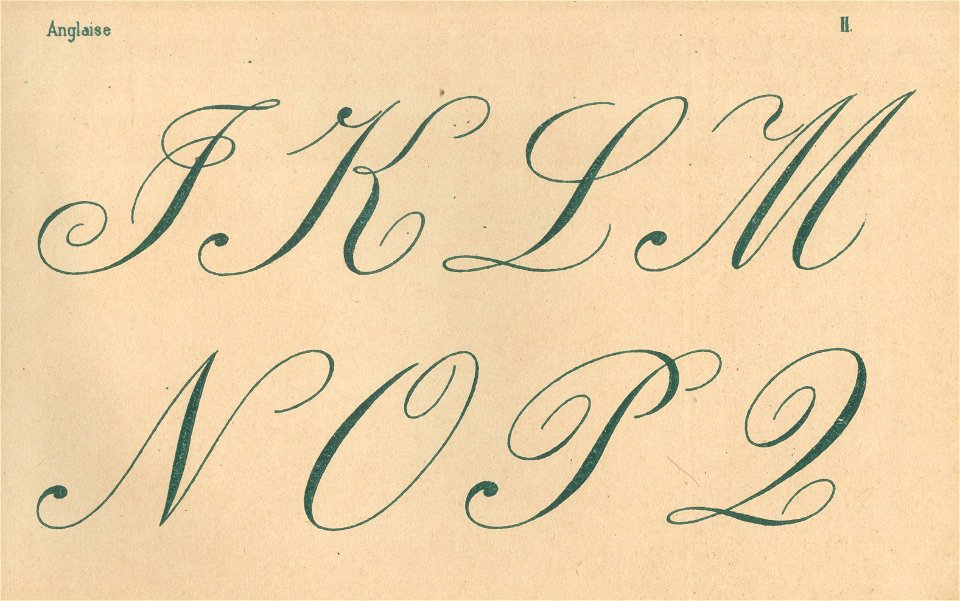 Anglaise II.
J K L M
N O P Q